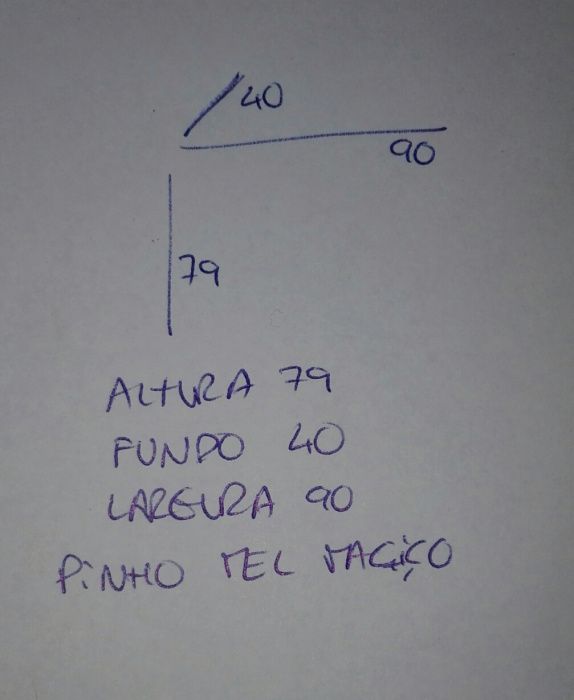 40
90
79
ALTURA 79
FUNDO 40
LARGURA 90
PINHO MEL MACIÇO